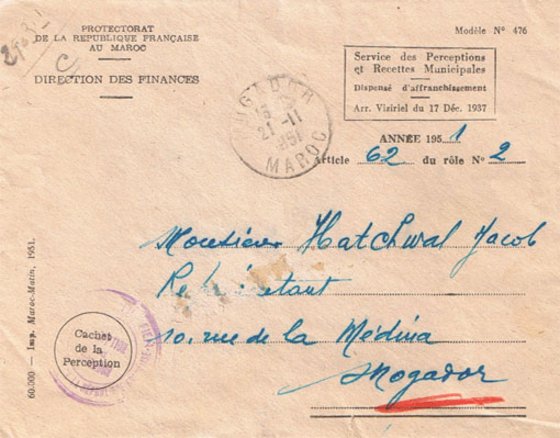 PROTECTORAT
DE LA REPUBLIQUE FRANÇAISE
AU MAROC
DIRECTION DES FINANCES
Modèle N° 476
Service des Perceptions
et Recettes Municipales
Dispensé d'affranchissement
Arr. Viziriel du 17 Déc. 1937
MOGADOR
21-11
MAROC
ANNÉE 1951
Article 62 du rôle N° 2
Monsieur Hatchwal Jacob
10, rue de la Médina
Mogador
Cachet
de la
Perception
60.000 — Imp. Maroc-Matin, 1951.